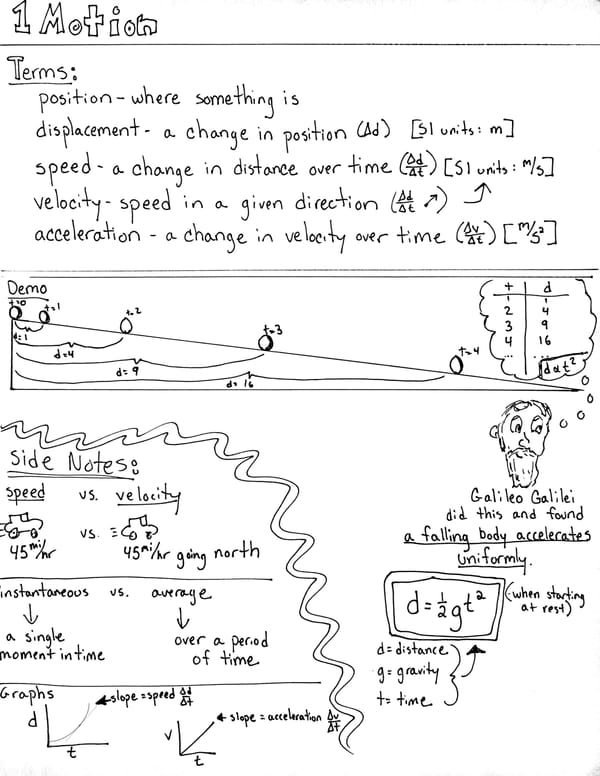 1 Motion
Terms:
position - where something is
displacement - a change in position (Δd) [SI units: m]
speed - a change in distance over time (Δd/Δt) [SI units: m/s]
velocity - speed in a given direction (Δd/Δt ↗)
acceleration - a change in velocity over time (Δv/Δt) [m/s²]
Demo
t=0
t=1
t=2
t=3
t=4
d=1
d=4
d=9
d=16
t d
1 1
2 4
3 9
4 16
... ...
d α t²
Side Notes:
speed vs. velocity
vs.
45 mi/hr 45 mi/hr going north
instantaneous vs. average
a single
moment in time
over a period
of time
Graphs
d
t
slope = speed Δd/Δt
v
t
slope = acceleration Δv/Δt
Galileo Galilei
did this and found
a falling body accelerates
uniformly.
d = ½gt²
(when starting
at rest)
d = distance
g = gravity
t = time